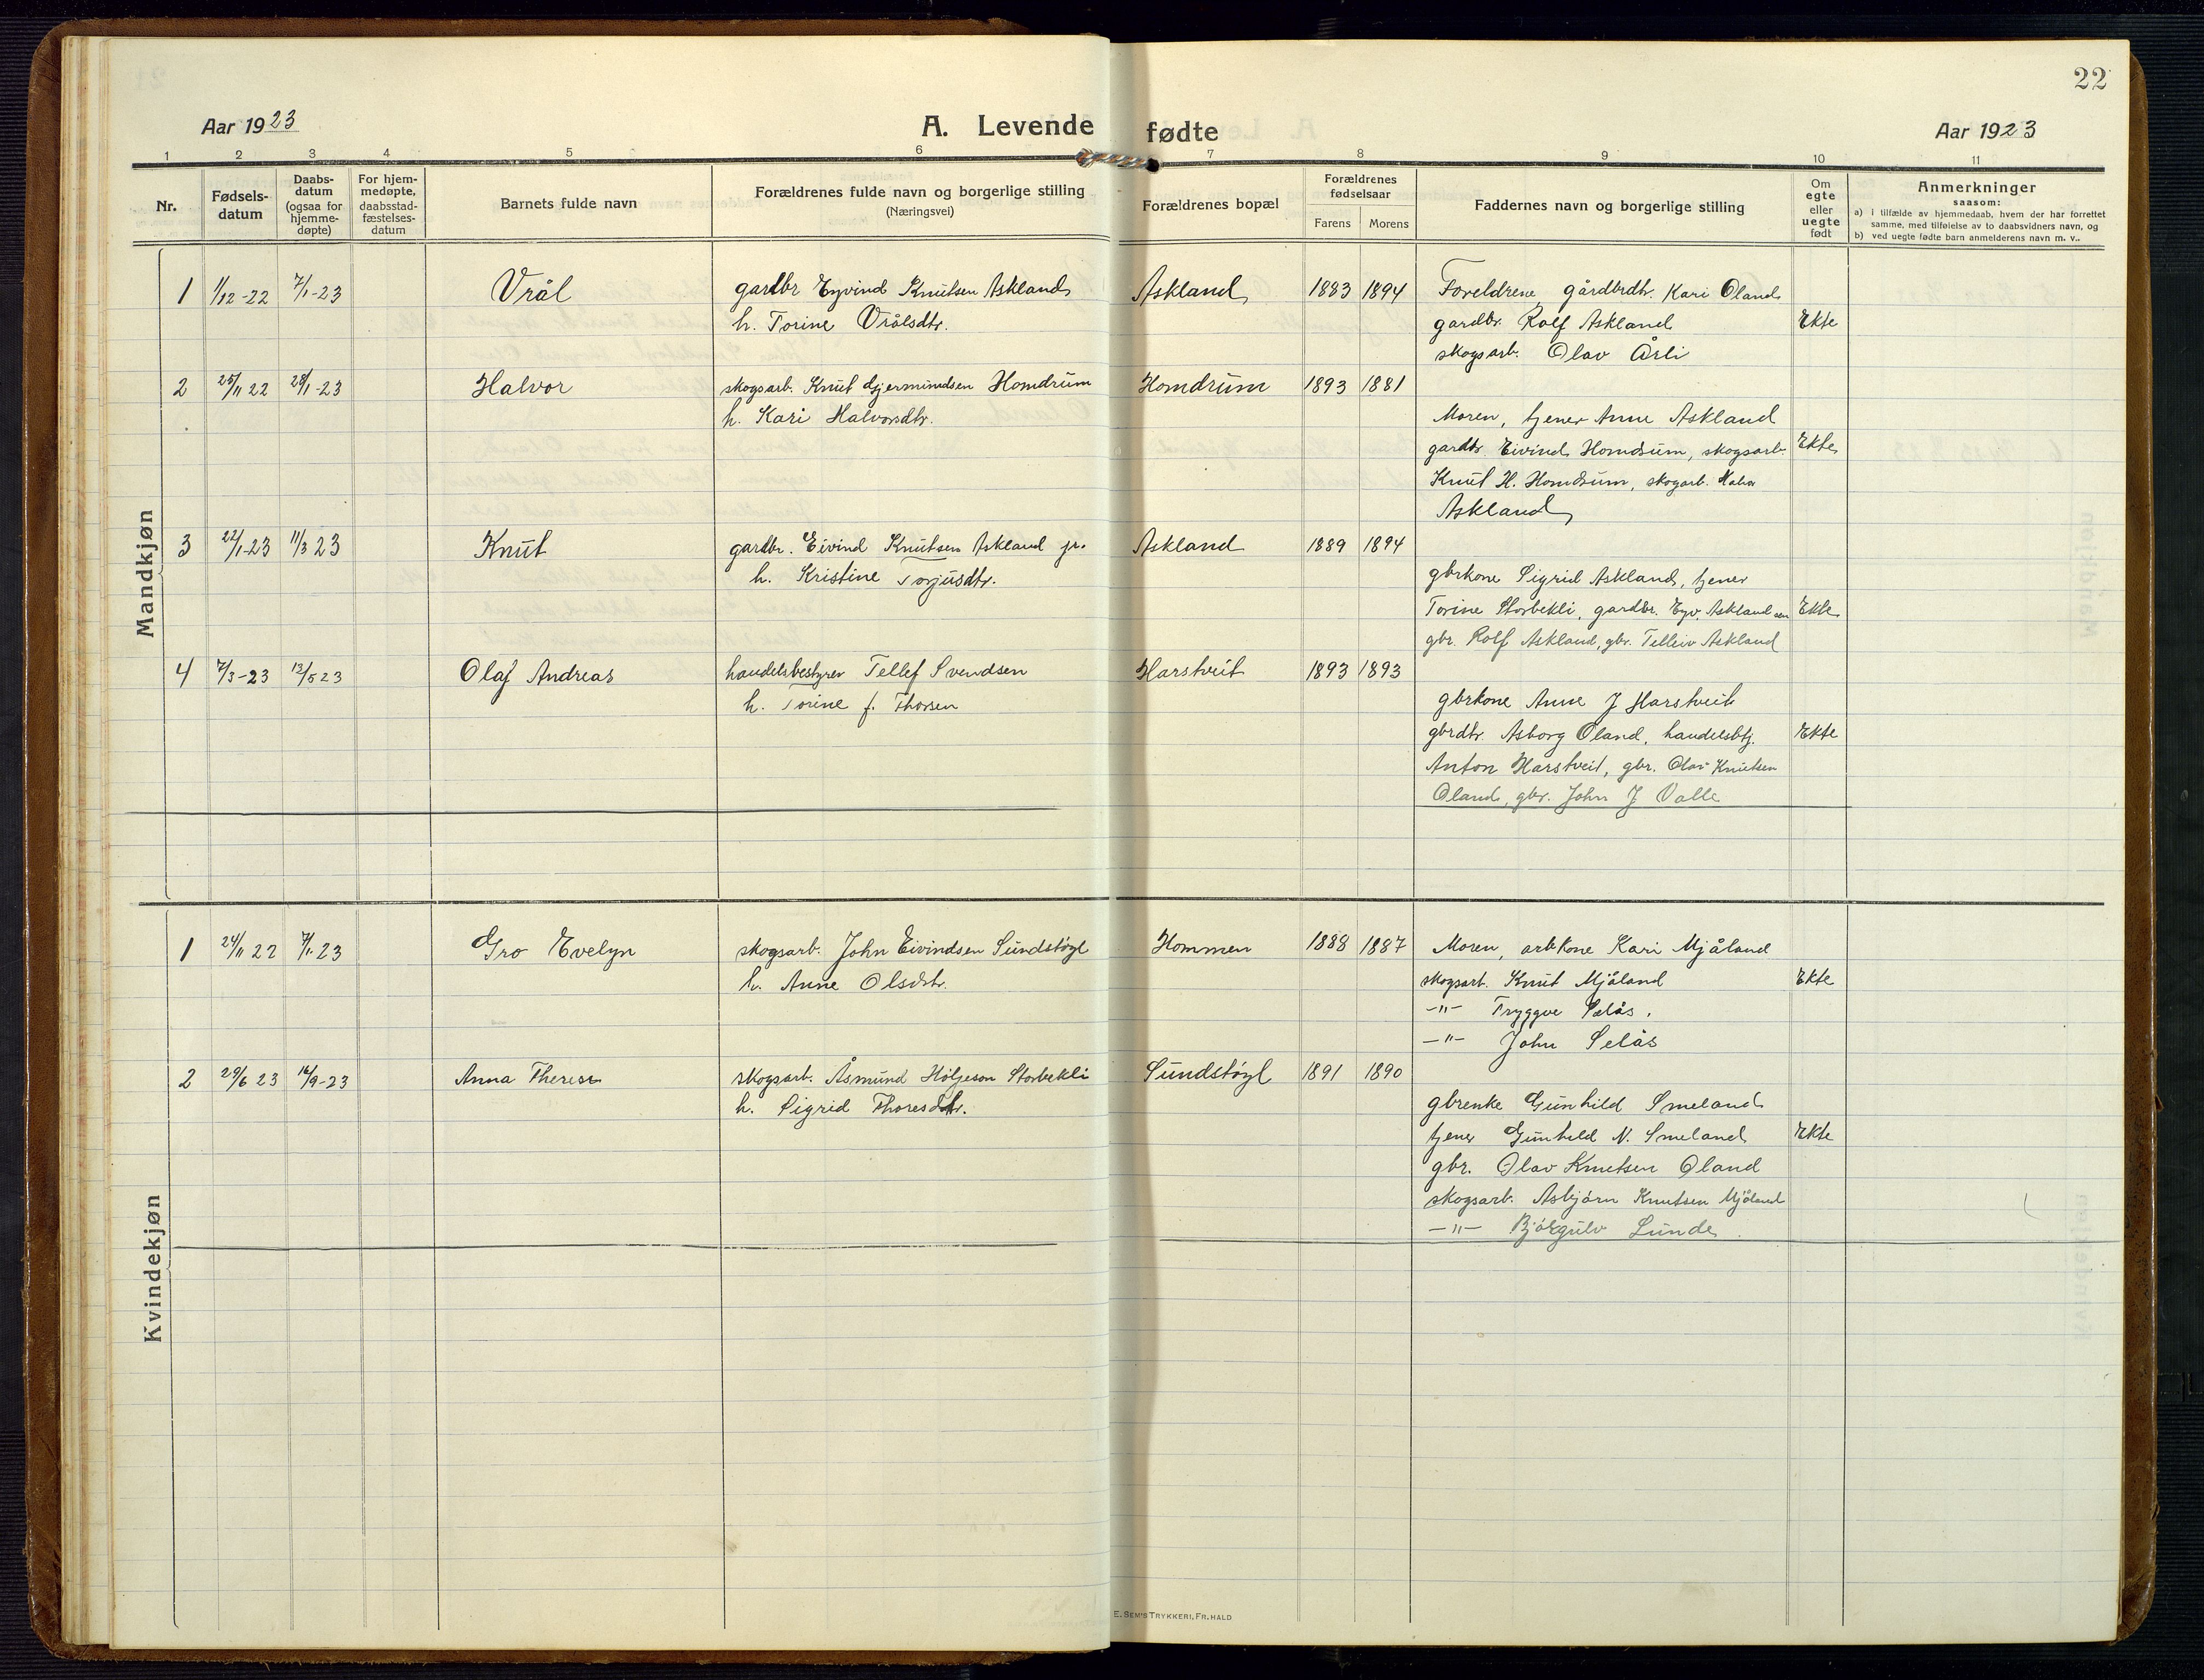 22
Aar 1923
A. Levende fødte
Aar 1923
1 2 3 4 5 6 7 8 9 10 11
Nr.
Fødsels-
datum
Daabs-
datum
(ogsaa for
hjemme-
døpte)
For hjem-
medøpte,
daabsstad-
fæstelses-
datum
Barnets fulde navn
Forældrenes fulde navn og borgerlige stilling
(Næringsvei)
Forældrenes bopæl
Forældrenes
fødselsaar
Farens Morens
Faddernes navn og borgerlige stilling
Om
egte
eller
uegte
født
Anmerkninger
saasom:
a) i tilfælde av hjemmedaab, hvem der har forrettet
samme, med tilføielse av to daabsvidners navn, og
b) ved uegte fødte barn anmelderens navn m. v..
Mandkjøn
1 1/12-22 7/1-23 Vrål gardbr Eyvind Knutsen Askland Askland 1883 1894 Foreldrene, gårdbrdtr. Kari Oland
h. Torine Vrålsdtr. gardbr. Rolf Askland Ekte
skogsarb. Olav Årli
2 25/11 22 28/1-23 Halvor skogsarb. Knut Gjermundsen Homdrum Homdrum 1893 1881
h. Kari Halvorsdtr. Moren, tjener Anne Askland
gardbr. Eivind Homdrum, skogsarb. Ekte
Knut H. Homdrum, skogarb.
Askland
3 22/1-23 11/3 23 Knut gardbr. Eivind Knutsen Askland jr. Askland 1889 1894
h. Kristine Torjusdtr. gbrkone Sigrid Askland, tjener
Torine Storbekli, gardbr. Eyv. Askland sen Ekte
gbr. Rolf Askland, gbr. Telleiv Askland
4 7/3-23 13/5 23 Olaf Andreas handelsbestyrer Tellef Svendsen Harstveit 1893 1893
h. Torine f. Thorsen gbrkone Anne J Harstveit
gbrdtr. Asborg Oland, handelsbtj. Ekte
Anton Harstveit, gbr. Olav Knutsen
Oland, gbr. John J Valle
Kvindekjøn
1 24/11 22 7/1 23 Gro Evelyn skogsarb. John Eivindsen Sundstøyl Hommen 1888 1887 Moren, arbkone Kari Mjåland
h. Anne Olsdtr. skogsarb. Knut Mjåland Ekte
-"- Tryggve Selås.
-"- John Selås
2 29/6 23 16/9-23 Anna Therese skogsarb. Åsmund Høljeson Storbekli Sundstøyl 1891 1890
h. Sigrid Thoresdtr. gbrenke Gunhild Smeland
tjener Gunhild N. Smeland Ekte
gbr. Olav Knutsen Oland
skogsarb. Asbjørn Knutsen Mjåland
-"- Bjørgulv Lunde.
E. SEM'S TRYKKERI, FR.HALD